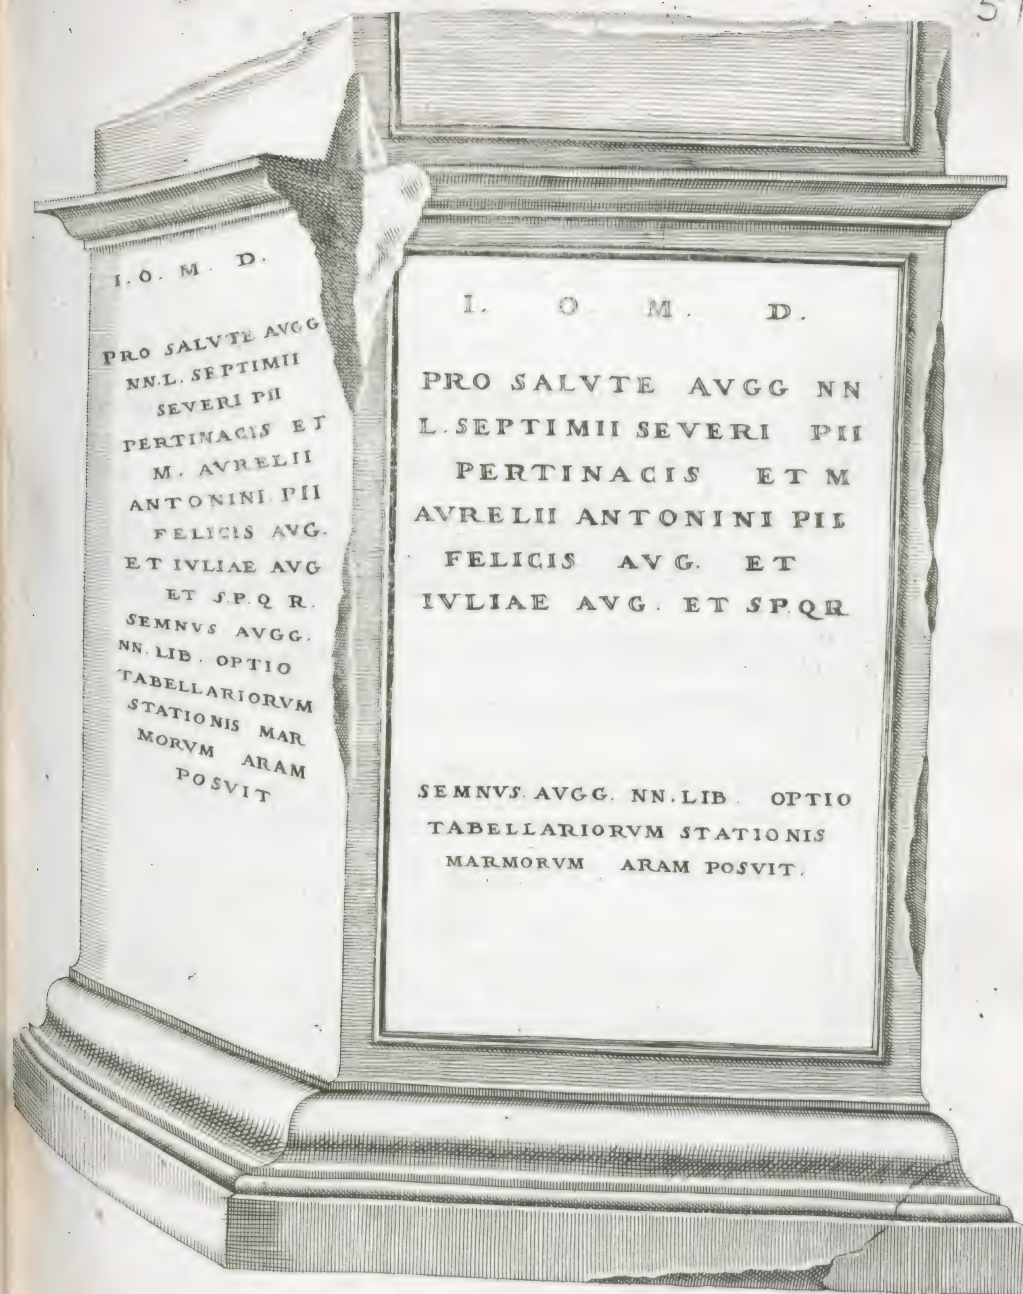 I. O. M. D.
PRO SALVTE AVGG
NN. L. SEPTIMII
SEVERI PII
PERTINACIS ET
M. AVRELII
ANTONINI PII
FELICIS AVG.
ET IVLIAE AVG
ET S.P.Q R.
SEMNVS AVGG.
NN. LIB. OPTIO
TABELLARIORVM
STATIONIS MAR
MORVM ARAM
POSVIT
I. O. M. D.
PRO SALVTE AVGG NN
L. SEPTIMII SEVERI PII
PERTINACIS ET M
AVRELII ANTONINI PII
FELICIS AVG. ET
IVLIAE AVG. ET S.P.QR
SEMNVS. AVGG. NN. LIB. OPTIO
TABELLARIORVM STATIONIS
MARMORVM ARAM POSVIT.